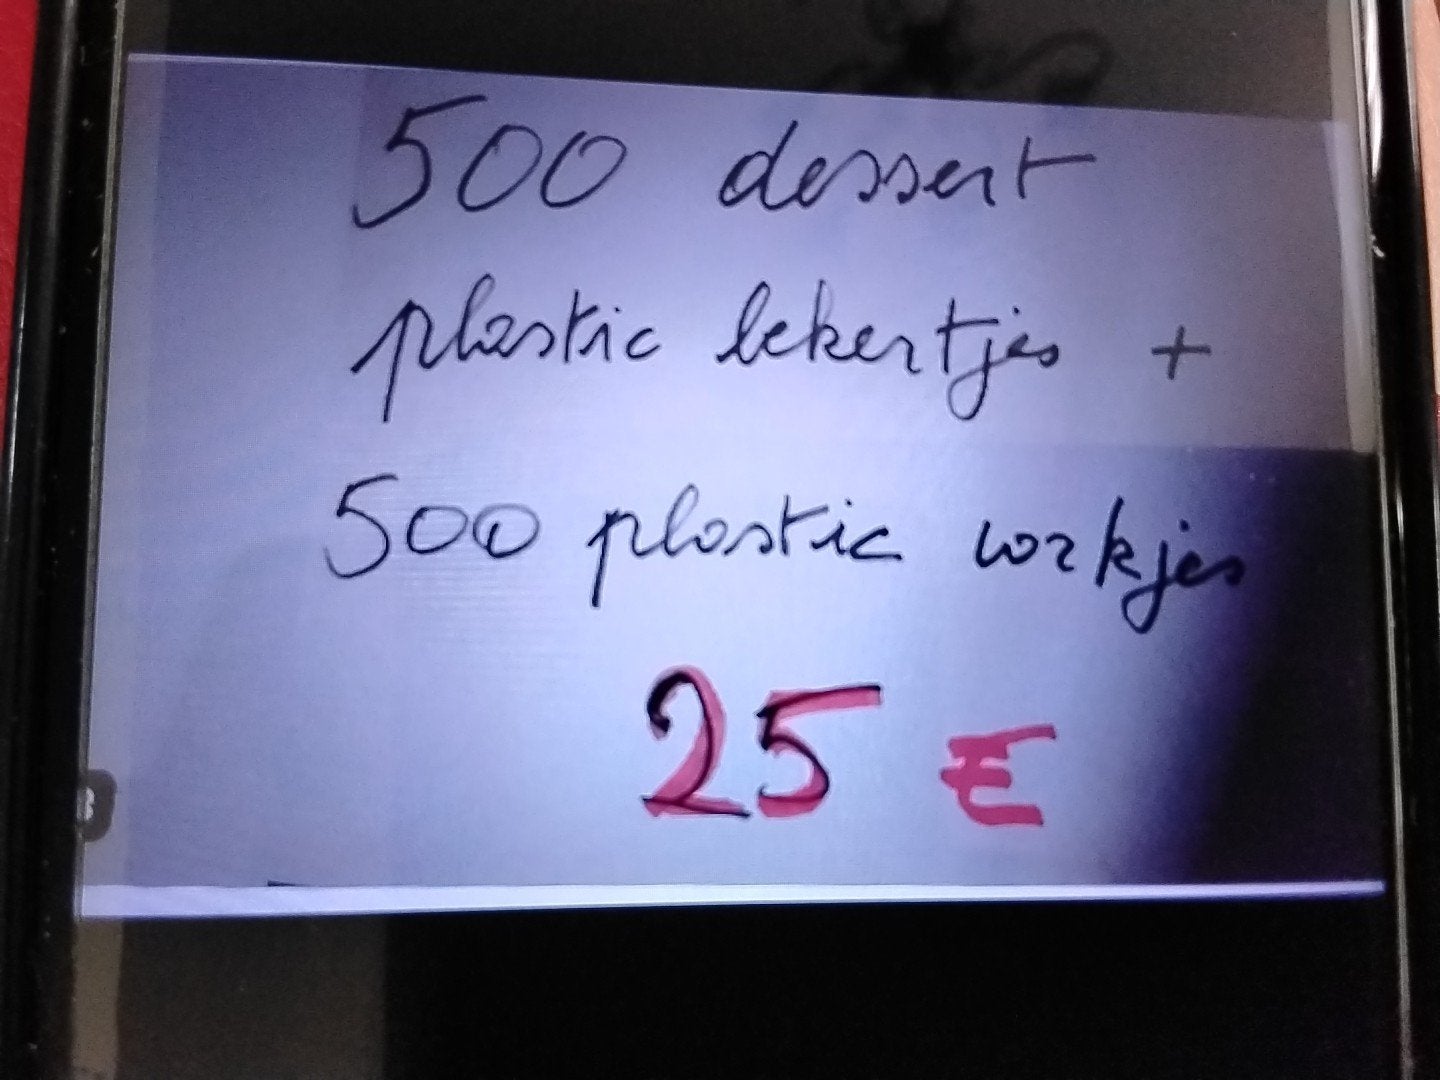 500 dessert
plastic bekertjes +
500 plastic vorkjes
25 €